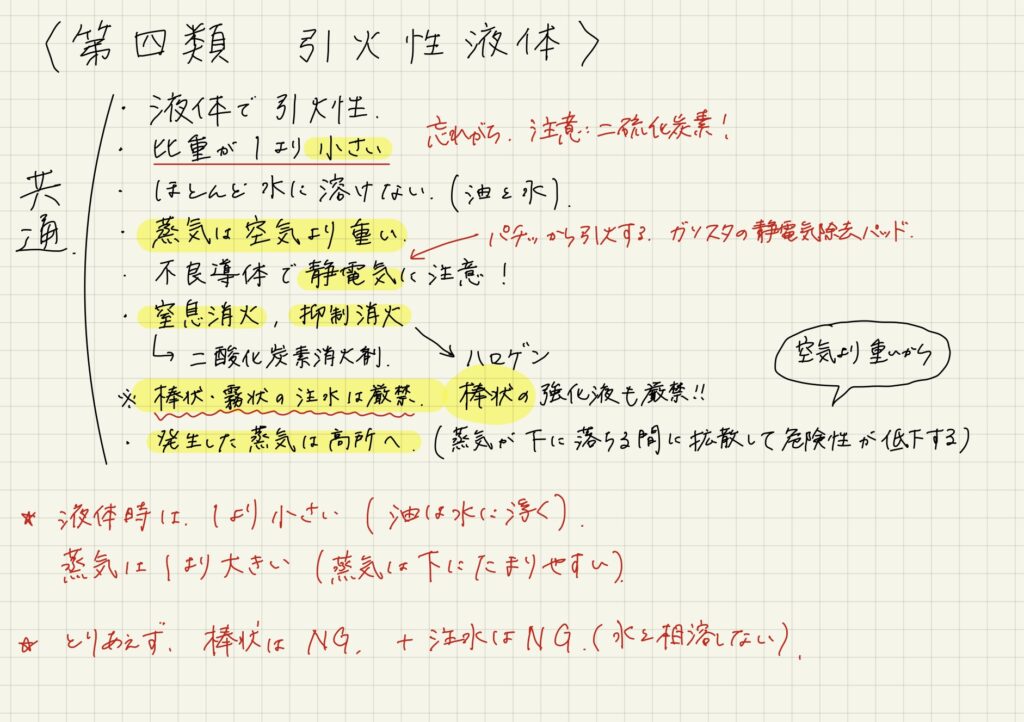 〈第四類 引火性液体〉
共通.
・液体で引火性.
・比重が1より小さい
忘れがち. 注意:二硫化炭素!
・ほとんど水に溶けない.(油と水).
・蒸気は空気より重い.
パチッから引火する. ガソスタの静電気除去パッド.
・不良導体で静電気に注意!
・窒息消火, 抑制消火
↳ 二酸化炭素消火剤.
ハロゲン
空気より重いから
※ 棒状・霧状の注水は厳禁. 棒状の強化液も厳禁!!
・発生した蒸気は高所へ.(蒸気が下に落ちる間に拡散して危険性が低下する)
★ 液体時は. 1より小さい(油は水に浮く).
蒸気は1より大きい(蒸気は下にたまりやすい).
★ とりあえず. 棒状はNG. + 注水はNG.(水と相溶しない).